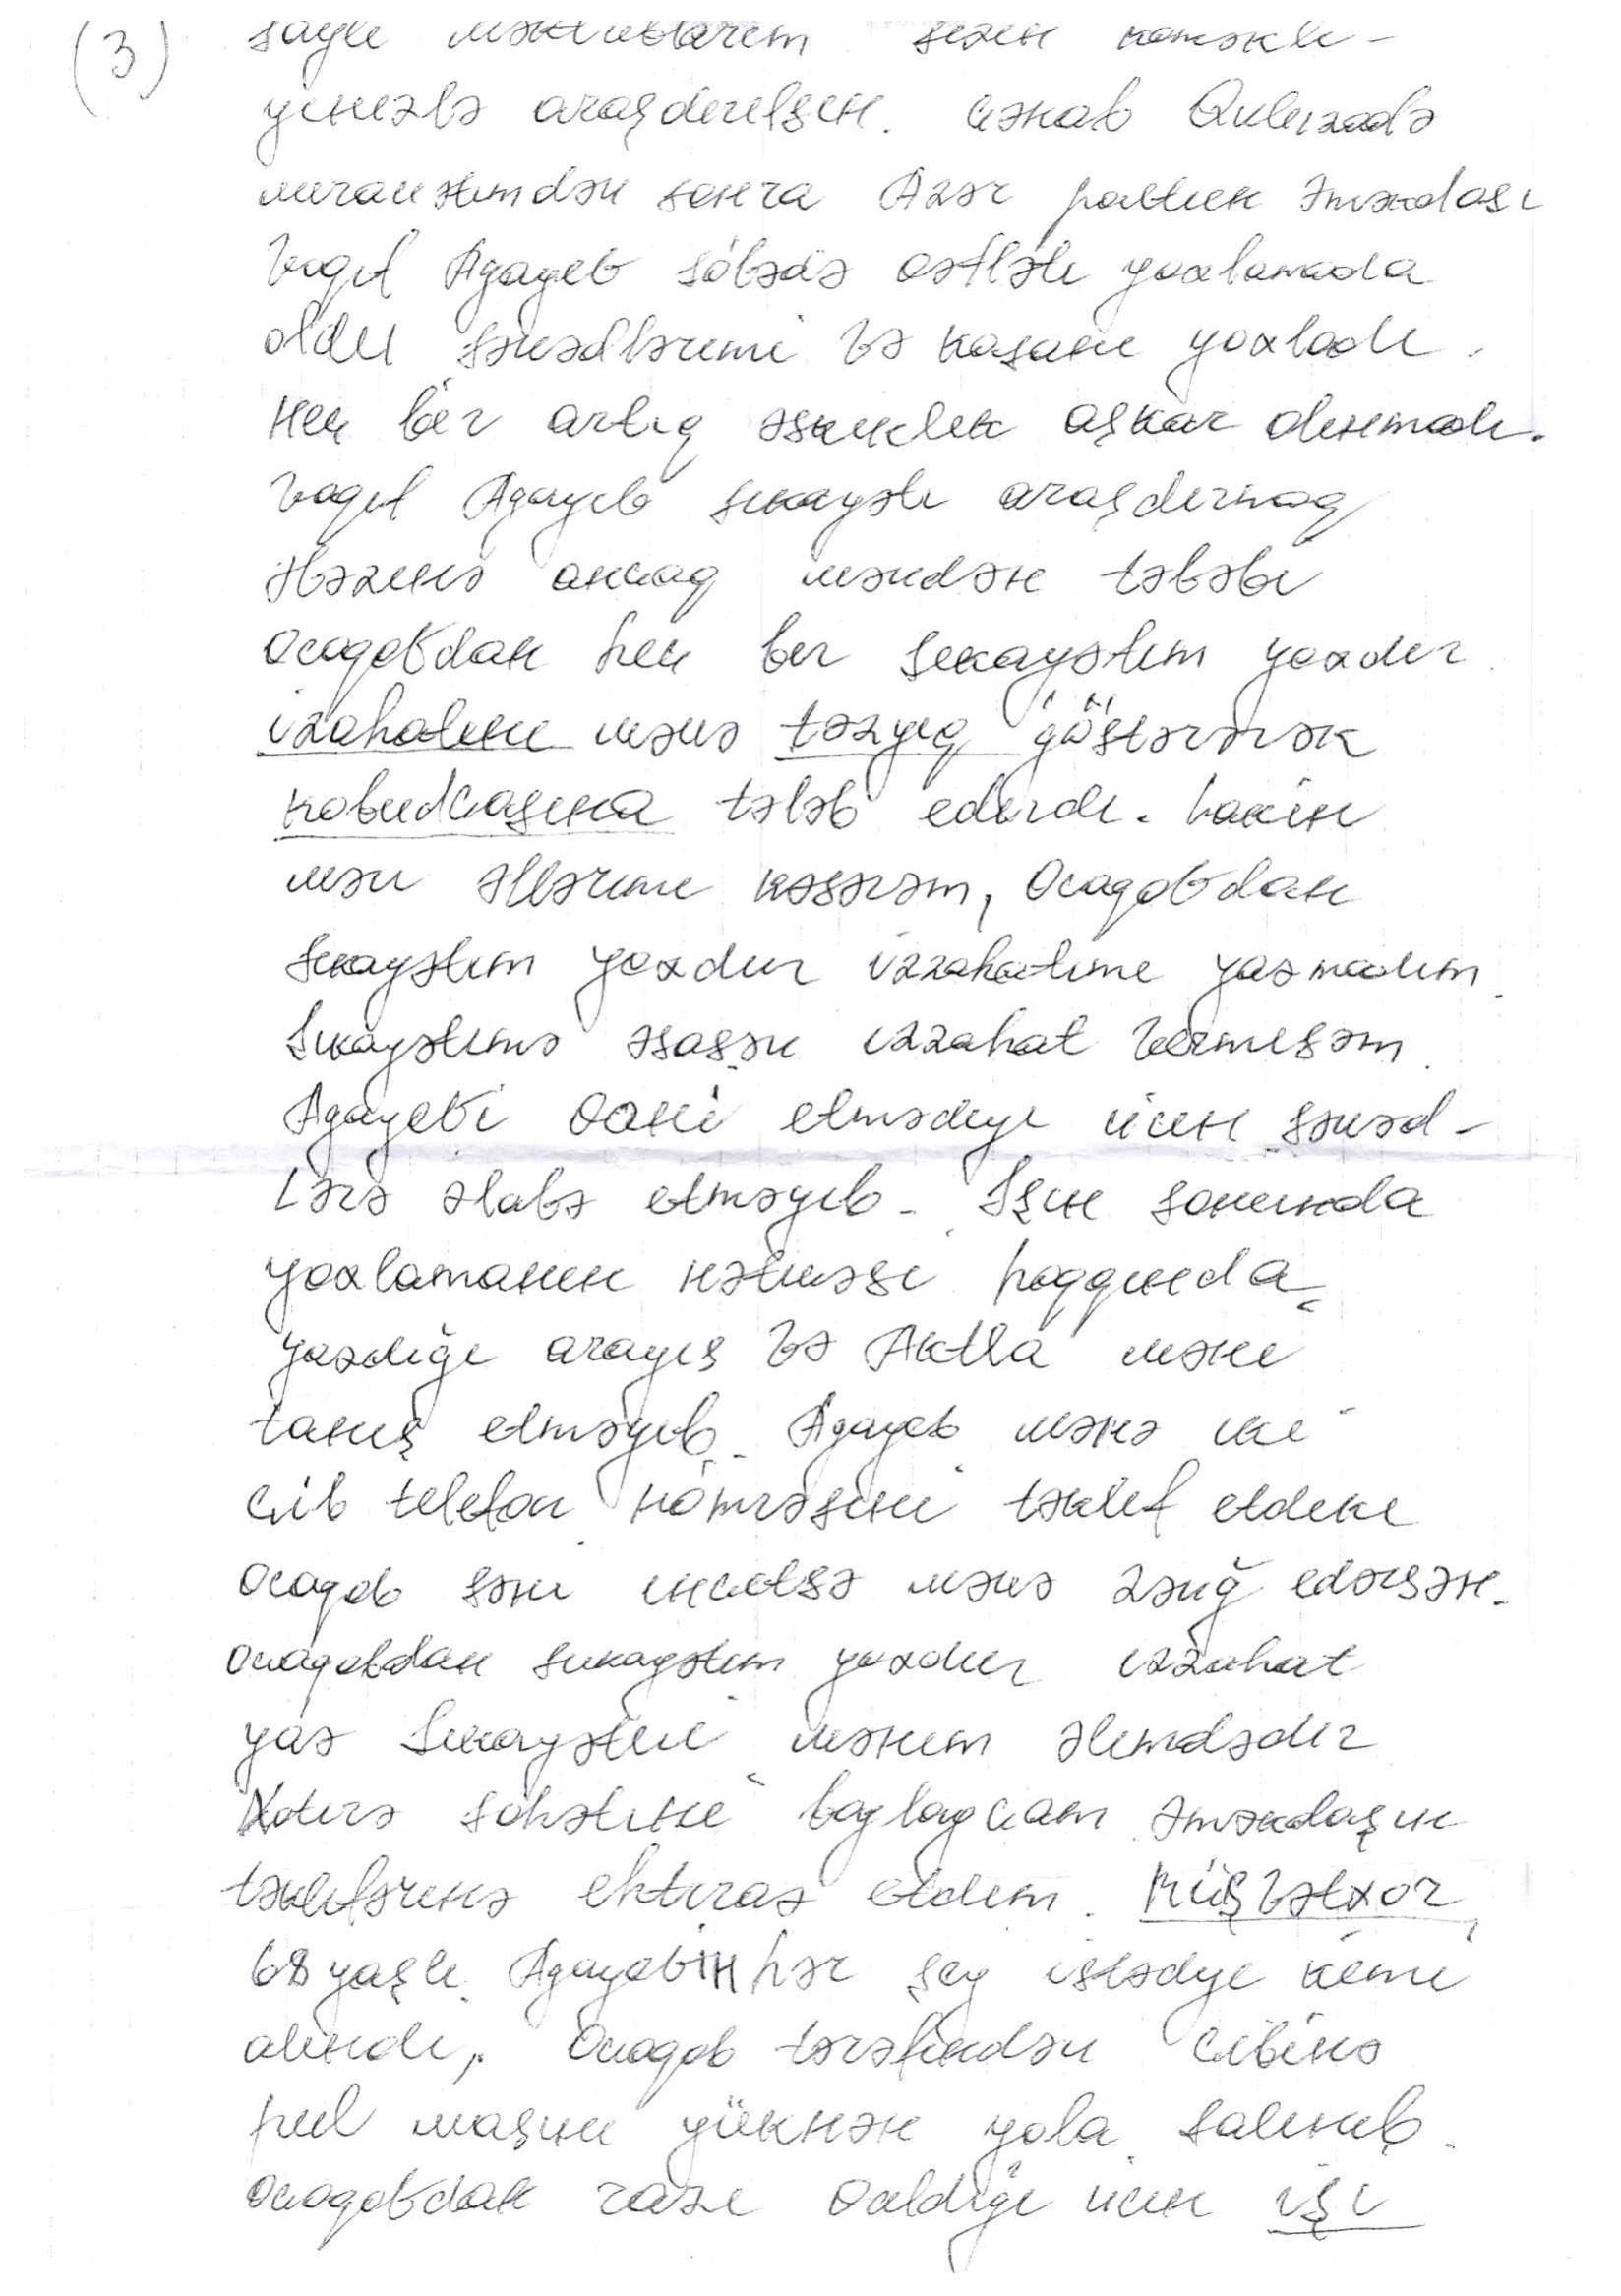 (3) saylı məktublarım sizin köməkli-
yinizlə araşdırılsın. Cənab Quluzadə
müraciətimdən sonra Azər poçtun əməkdaşı
Vaqif Agayev şöbədə qəfləti yoxlamada
oldu sənədlərimi və kasanı yoxladı.
Heç bir artıq əskiklik aşkar olunmadı.
Vaqif Agayev şikayəti araşdırmaq
əvəzinə ancaq məndən tələbi
Ocaqovdan heç bir şikayətim yoxdur
izahatını mənə təzyiq göstərərək
kobudcasına tələb edirdi. Lakin
mən əllərimi kəsərəm, Ocaqovdan
şikayətim yoxdur izzahatımı yazmadım.
Şikayətimə əsasən izzahat vermişəm.
Agayevi qane etmədiyi üçün sənəd-
lərə əlavə etməyib. İşin sonunda
yoxlamanın nəticəsi haqqında
yazdığı arayış və Aktla məni
tanış etməyib. Agayev mənə iki
cib telefon nömrəsini təklif etdiki
Ocaqov səni incitsə mənə zəng edərsən.
Ocaqovdan şikayətim yoxdur izzahat
yaz Şikayətin mənim əlimdədir
Xətirə söhbətini baglaycam əməkdaşın
təklifərinə ehtiraz etdim. Rüşvətxor,
68 yaşlı Agayevin hər şey istədiyi kimi
alındı, Ocaqov tərəfindən cibinə
pul maşını yüknən yola salınıb.
Ocaqovdan razı qaldığı üçün işi